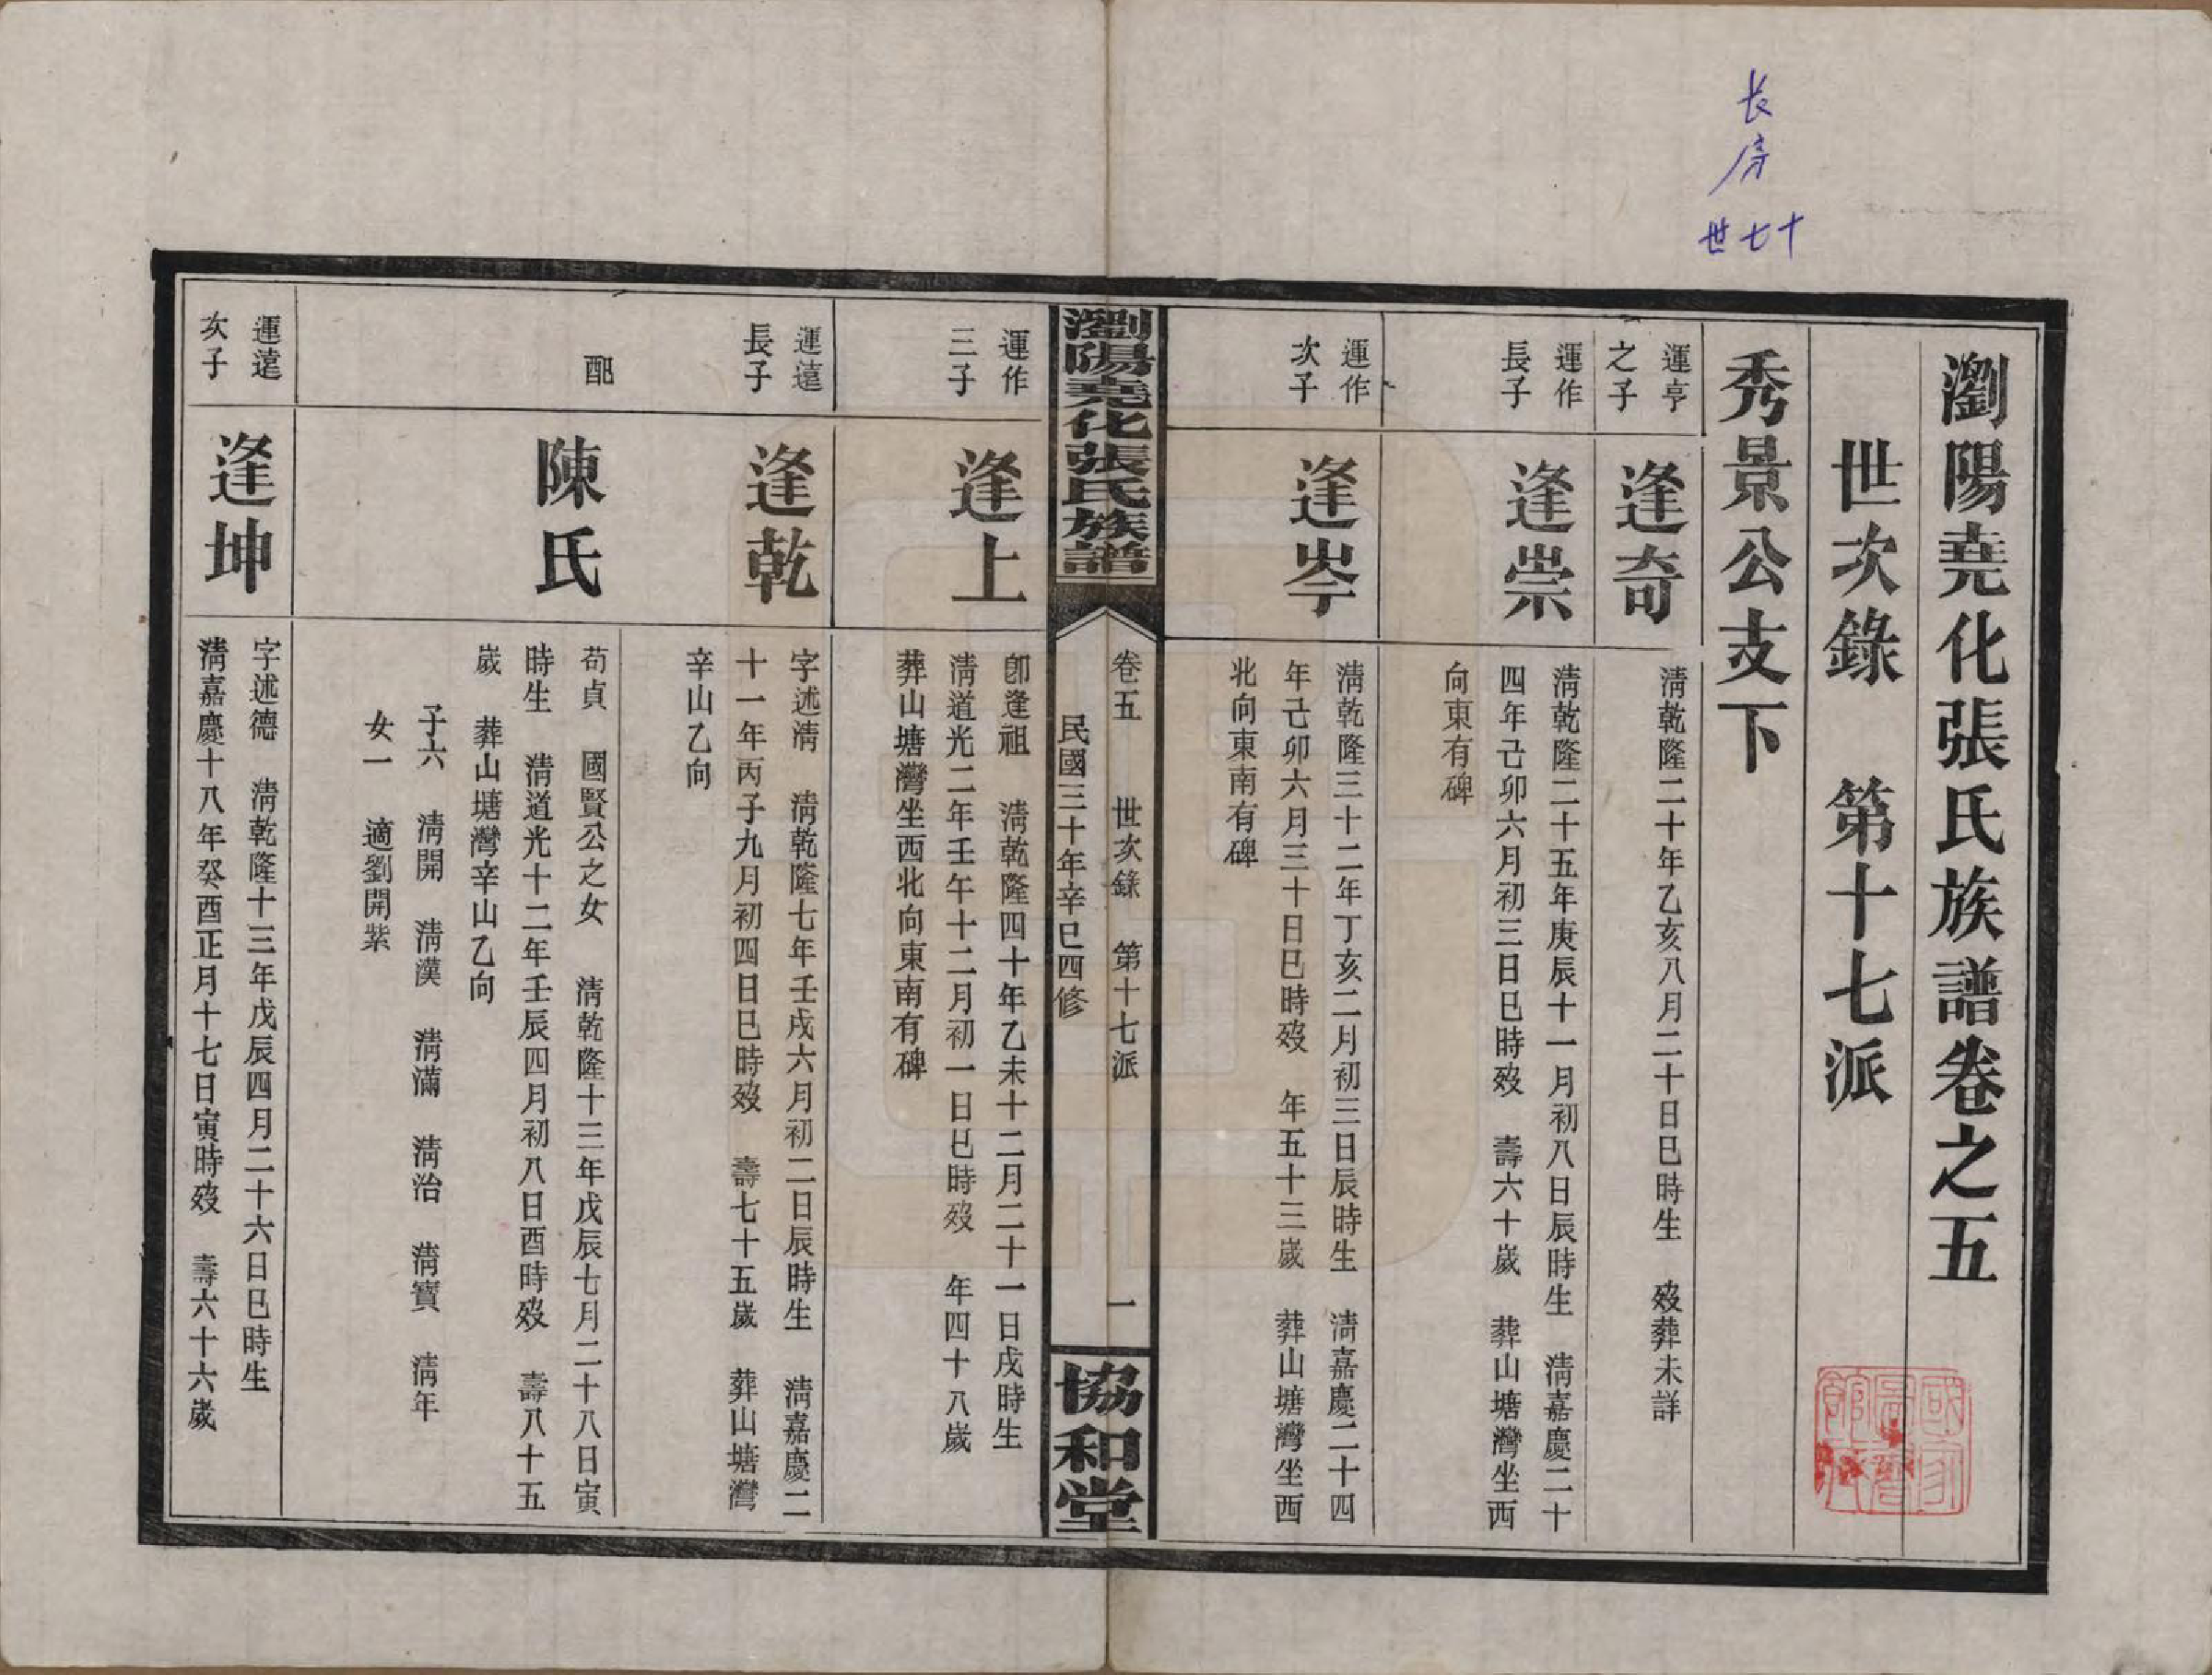 长房
十七世
瀏陽堯化張氏族譜卷之五
世次錄　第十七派
秀景公支下
運亨
之子
逢奇
淸乾隆二十年乙亥八月二十日巳時生　歿葬未詳
運作
長子
逢崇
淸乾隆二十五年庚辰十一月初八日辰時生　淸嘉慶二十
四年己卯六月初三日巳時歿　壽六十歲　葬山塘灣坐西
向東有碑
運作
次子
逢岑
淸乾隆三十二年丁亥二月初三日辰時生　淸嘉慶二十四
年己卯六月三十日巳時歿　年五十三歲　葬山塘灣坐西
北向東南有碑
瀏陽堯化張氏族譜
卷五　世次錄　第十七派　一
民國三十年辛巳四修
協和堂
運作
三子
逢上
卽逢祖　淸乾隆四十年乙未十二月二十一日戌時生
淸道光二年壬午十二月初一日巳時歿　年四十八歲
葬山塘灣坐西北向東南有碑
運遠
長子
逢乾
字述淸　淸乾隆七年壬戌六月初二日辰時生　淸嘉慶二
十一年丙子九月初四日巳時歿　壽七十五歲　葬山塘灣
辛山乙向
配
陳氏
苟貞　國賢公之女　淸乾隆十三年戊辰七月二十八日寅
時生　淸道光十二年壬辰四月初八日酉時歿　壽八十五
歲　葬山塘灣辛山乙向
子六　淸開　淸漢　淸滿　淸治　淸寶　淸年
女一　適劉開紫
運遠
次子
逢坤
字述德　淸乾隆十三年戊辰四月二十六日巳時生
淸嘉慶十八年癸酉正月十七日寅時歿　壽六十六歲
國家
圖書
館藏